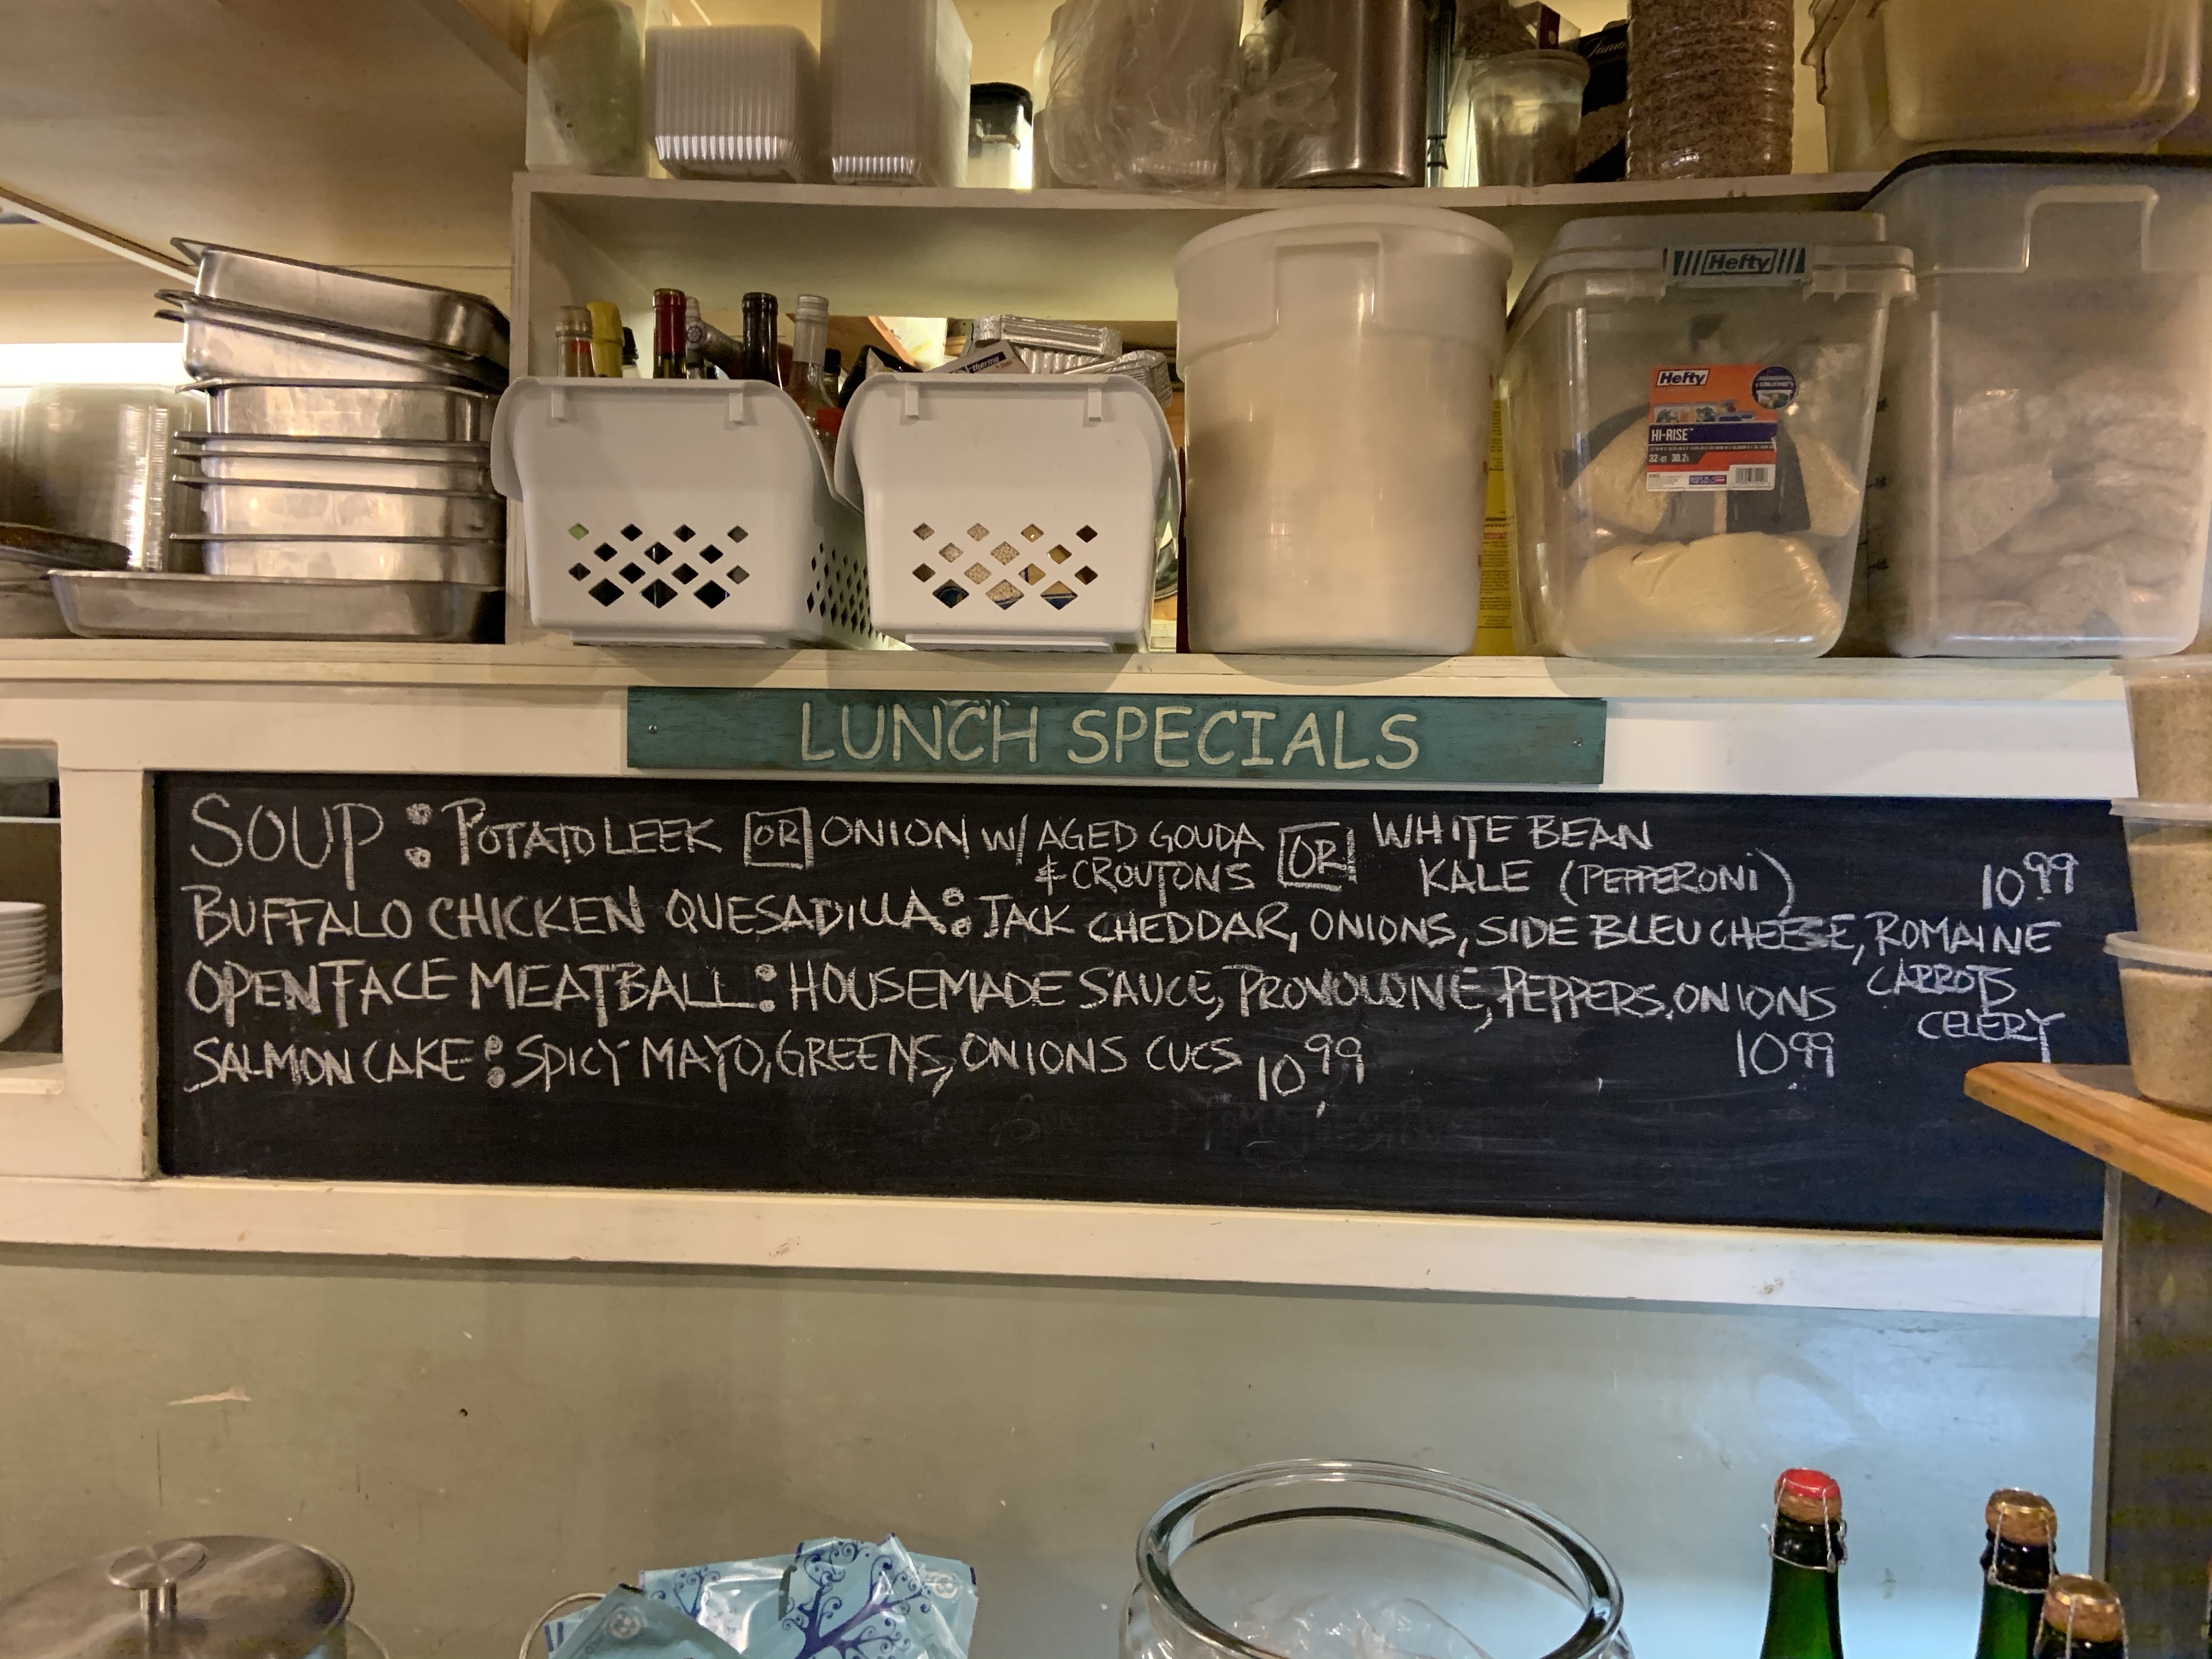 Hefty
Hefty
HI-RISE™
32 QT 30.2 L
LUNCH SPECIALS
SOUP: POTATO LEEK OR ONION W/ AGED GOUDA & CROUTONS OR WHITE BEAN KALE (PEPPERONI)
10.99
BUFFALO CHICKEN QUESADILLA: JACK CHEDDAR, ONIONS, SIDE BLEU CHEESE, ROMAINE
CARROTS
CELERY
OPEN FACE MEATBALL: HOUSEMADE SAUCE, PROVOLONE, PEPPERS, ONIONS
10.99
SALMON CAKE: SPICY MAYO, GREENS, ONIONS CUCS 10.99